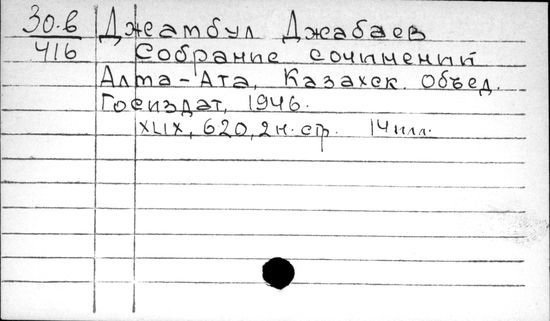 30-в Джамбул Джабаев
416 Собрание сочинений
Алма-Ата, Казахск. Объед.
Госиздат, 1946.
XLIX, 620, 2 н. стр. 14 илл.